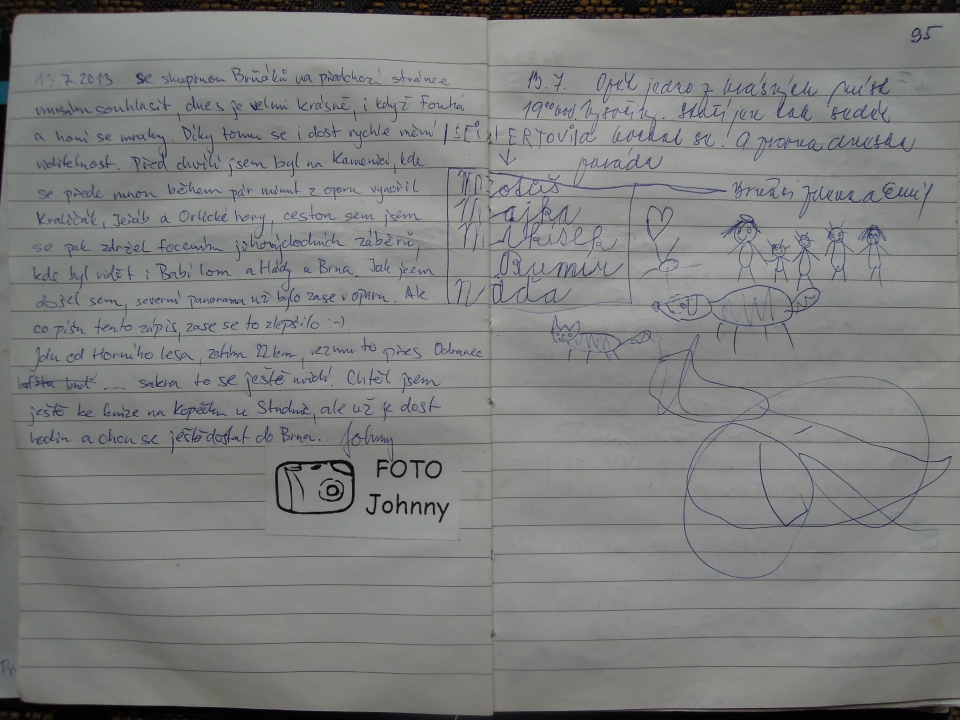 13.7.2013 se skupinou Brňáků na předchozí stránce
musím souhlasit, dnes je velmi krásně, i když fouká
a honí se mraky. Díky tomu se i dost rychle mění
viditelnost. Před chvílí jsem byl na Kamenici, kde
se přede mnou během pár minut z oparu vynořil
Kraličák, Jeřáb a Orlické hory, cestou sem jsem
se pak zdržel focením jihovýchodních záběrů,
kde byl vidět i Babí lom a Hády u Brna. Jak jsem
došel sem, severní panorama už bylo zase v oparu. Ale
co píšu tento zápis, zase se to zlepšilo :-)
Jdu od Horního lesa, zatím 22 km, vezmu to přes Odranec
... sakra to se ještě uvidí. Chtěl jsem
ještě ke knize na Kopečku u Studnic, ale už je dost
hodin a chci se ještě dostat do Brna. Johny
FOTO
Johnny
95
13.7. Opět jedno z krásných míst
Vysočiny. jen tak sedět
kochat se. A zrovna dneska
paráda
Matouš
Majka
Mikísek
Dáda